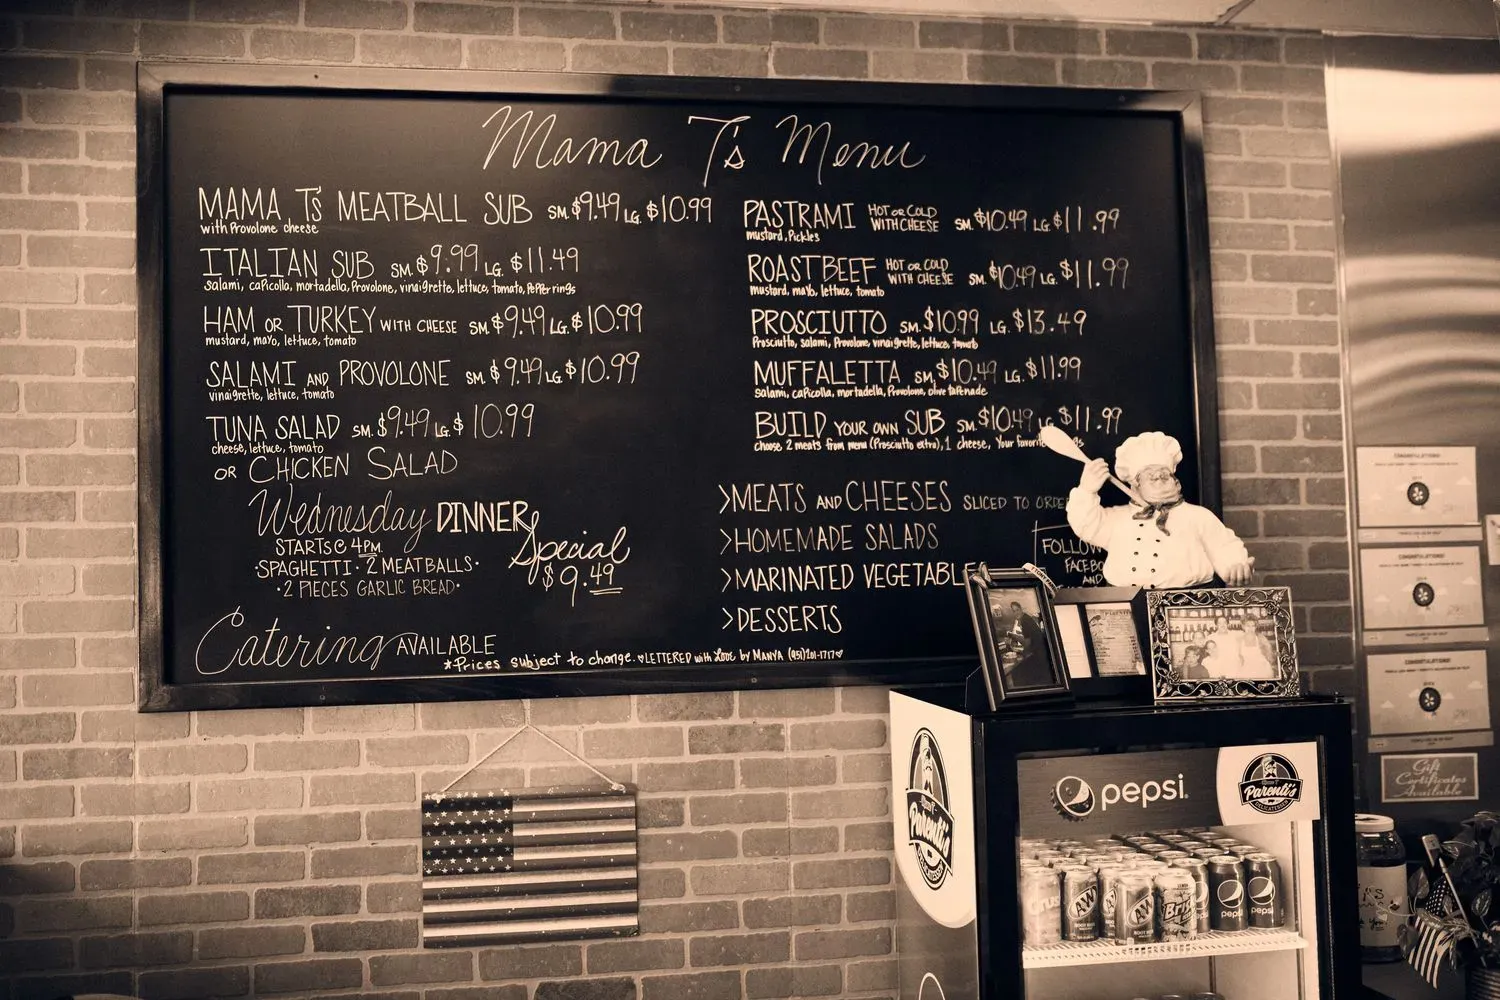 Mama T's Menu
MAMA T's MEATBALL SUB SM. $9.49 LG. $10.99
with Provolone cheese
ITALIAN SUB SM. $9.99 LG. $11.49
salami, capicolla, mortadella, Provolone, vinaigrette, lettuce, tomato, pepper rings
HAM OR TURKEY WITH CHEESE SM. $9.49 LG. $10.99
mustard, mayo, lettuce, tomato
SALAMI AND PROVOLONE SM. $9.49 LG. $10.99
vinaigrette, lettuce, tomato
TUNA SALAD SM. $9.49 LG. $10.99
cheese, lettuce, tomato
OR CHICKEN SALAD
Wednesday DINNER
Special
STARTS @ 4PM
·SPAGHETTI· 2 MEATBALLS·
·2 PIECES GARLIC BREAD·
$9.49
Catering AVAILABLE
*Prices subject to change. ♥LETTERED with Love by MANYA (951)201-1717♥
PASTRAMI HOT or COLD WITH CHEESE SM. $10.49 LG. $11.99
mustard, Pickles
ROAST BEEF HOT or COLD WITH CHEESE SM. $10.49 LG. $11.99
mustard, mayo, lettuce, tomato
PROSCIUTTO SM. $10.99 LG. $13.49
Prosciutto, salami, Provolone, vinaigrette, lettuce, tomato
MUFFALETTA SM. $10.49 LG. $11.99
salami, capicolla, mortadella, Provolone, olive tapenade
BUILD YOUR OWN SUB SM. $10.49 LG. $11.99
choose 2 meats from menu (Prosciutto extra), 1 cheese, Your favorite
>MEATS AND CHEESES SLICED TO ORDER
>HOMEMADE SALADS
>MARINATED VEGETABLE
>DESSERTS
FOLLOW
FACEBO
AND
CONGRATULATIONS!
CONGRATULATIONS!
CONGRATULATIONS!
Gift
Certificates
Available
pepsi
Parenti's
DELICATESSEN
Parenti's
Crush
A&W
A&W
Brisk
pepsi
pepsi